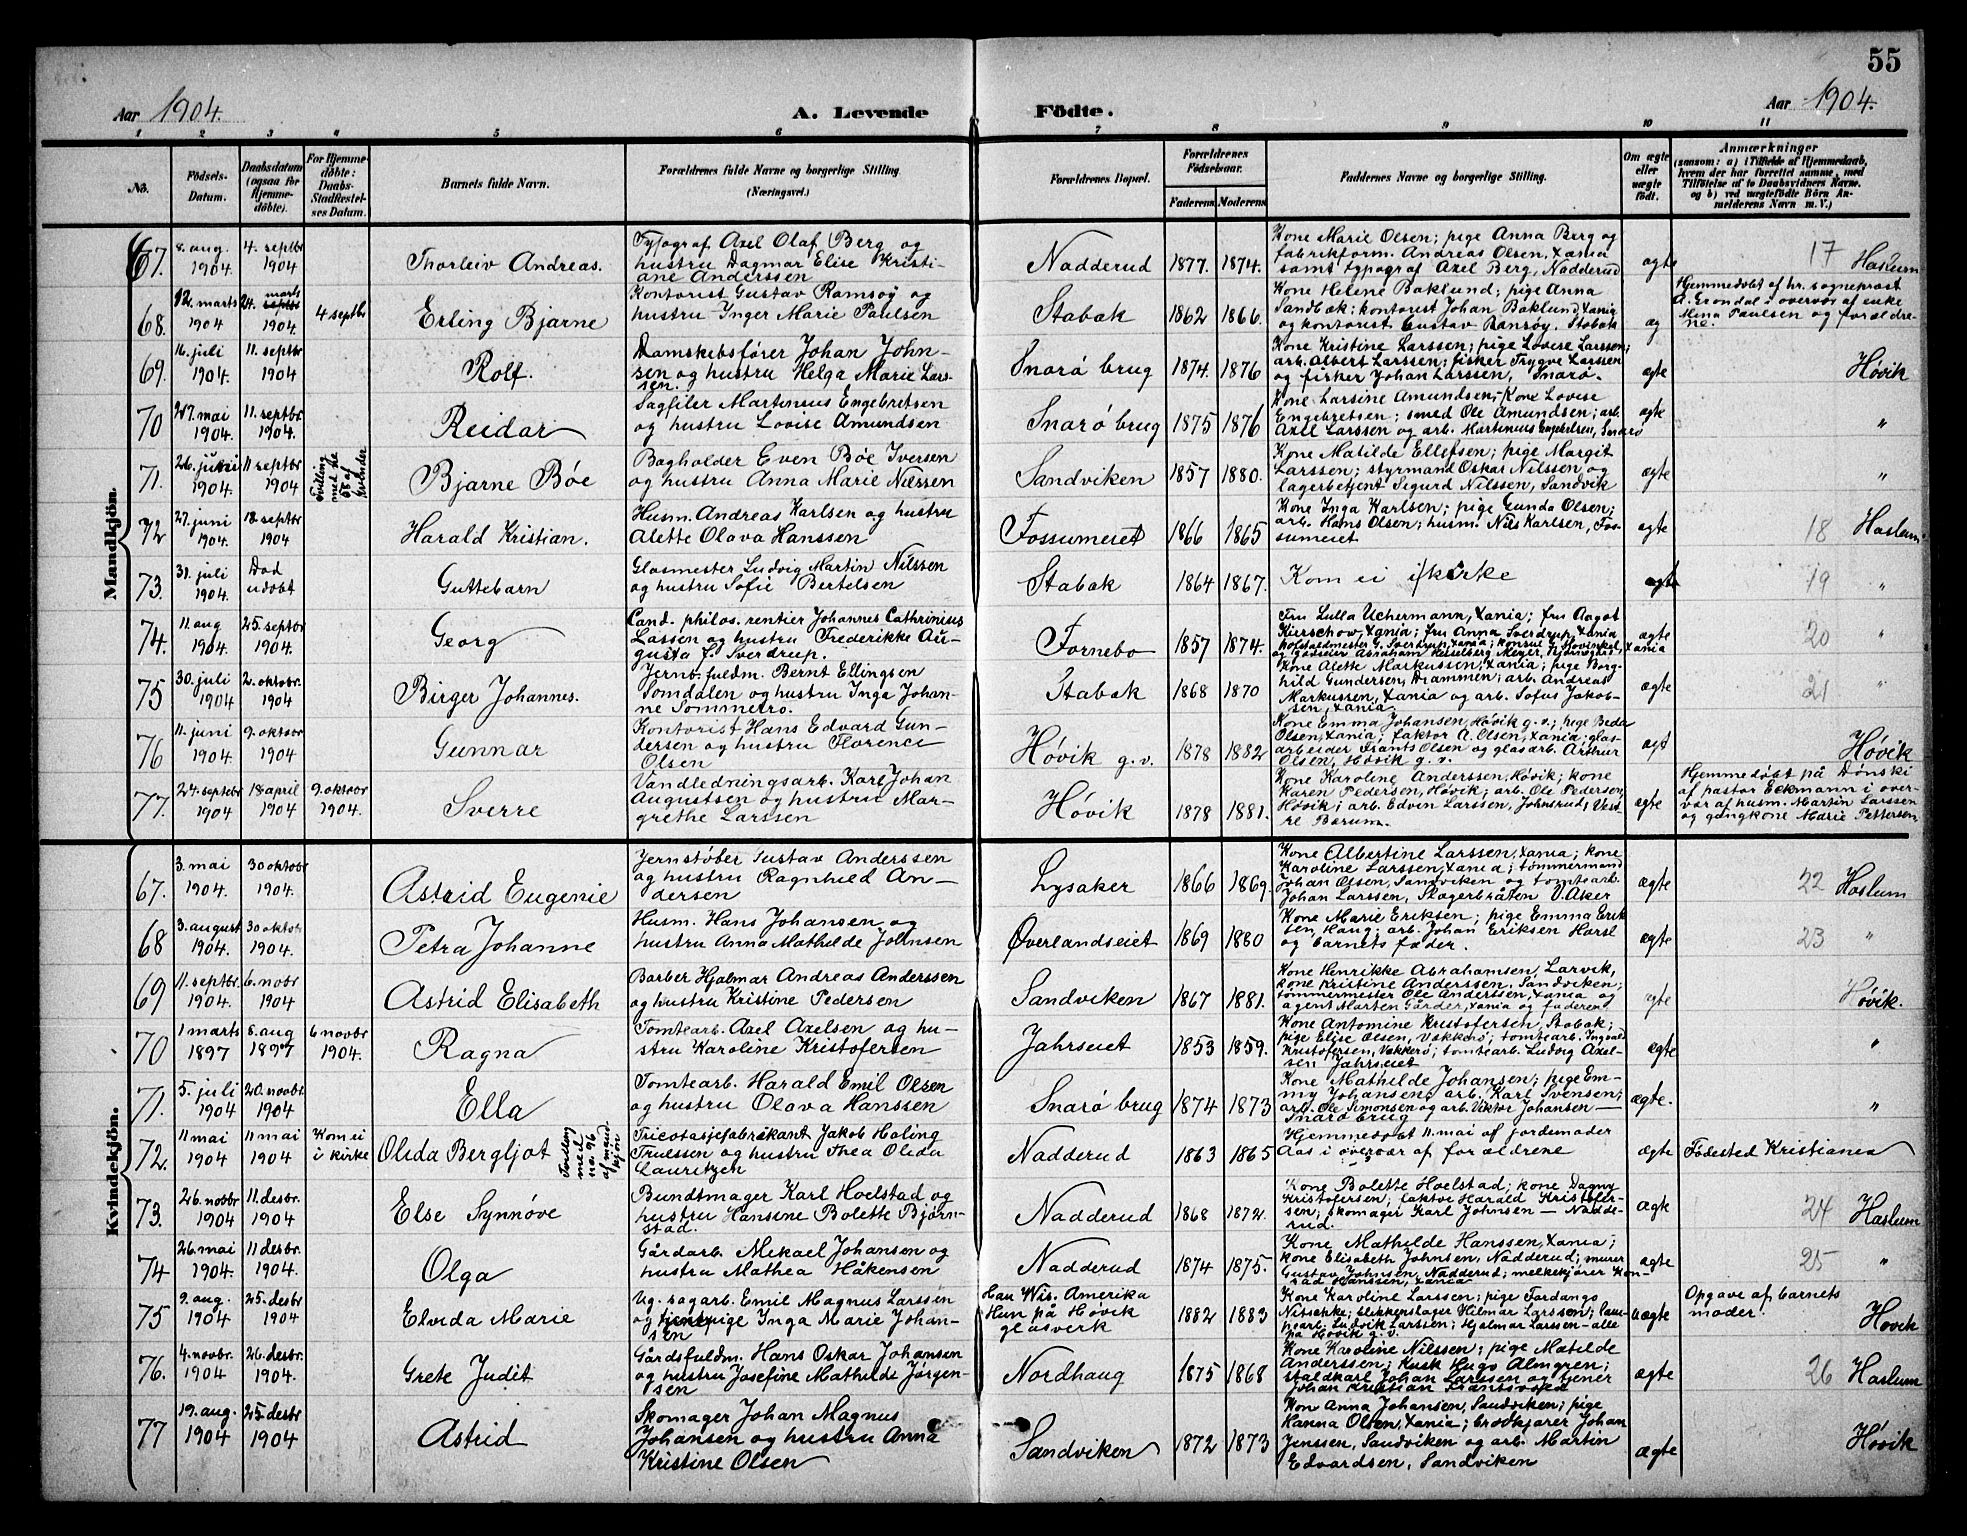 55
Aar 1904.
A. Levende Födte.
Aar 1904.
1 2 3 4 5 6 7 8 9 10 11
No.
Födsels-
Datum.
Daabsdatum
(ogsaa for
Hjemme-
döbte).
For Hjemme-
döbte:
Daabs-
Stadfæstel-
ses Datum.
Barnets fulde Navn.
Forældrenes fulde Navne og borgerlige Stilling.
(Næringsvei.)
Forældrenes Bopæl.
Forældrenes
Födselsaar.
Faderens. Moderens.
Faddernes Navne og borgerlige Stilling.
Om ægte
eller
uægte
födt.
Anmærkninger
(saasom: a) i Tilfælde af Hjemmedaab,
hvem der har forrettet samme, med
Tilföielse af to Daabsvidners Navne.
og b) ved uægtefödte Börn An-
melderens Navn m. V.)
Mandkjön.
67. 8. aug. 1904 4. septbr 1904 Thorleiv Andreas.
Typograf Axel Olaf Berg og
hustru Dagmar Elise Kristi-
ane Anderssen
Nadderud 1877. 1874.
Kone Marie Olsen; pige Anna Berg og
fabrikform. Andreas Olsen, Xania
samt typograf Axel Berg, Nadderud
ægte 17 Haslum
68. 12. marts 1904 24. marts septbr 1904 4 septbr Erling Bjarne
Kontorist Gustav Ramsøy og
hustru Inger Marie Paulsen
Stabæk 1862 1866.
Kone Helene Baklund; pige Anna
Sandbæk; kontorist Johan Baklund, Xania
og kontorist Gustav Ramsøy, Stabæk
æg
Hjemmedøbt af hr. sogneprost
A. Grondal i overvær af enke
Mina Paulsen og forældre-
ne.
69. 16. juli 1904. 11. septbr 1904 Rolf.
Damskibsfører Johan John-
sen og hustru Helga Marie Lars-
sen.
Snarø brug 1874. 1876
Kone Kristine Larssen; pige Lovise Larssen;
arb. Albert Larssen; fisker Trygve Larssen
og fisker Johan Larssen, Snarø.
ægte Høvik
70 27. mai 1904. 11. septbr 1904. Reidar
Sagfiler Martinius Engebretsen
og hustru Lovise Amundsen
Snarø brug 1875 1876
Kone Larsine Amundsen; Kone Lovise
Engebretsen; smed Ole Amundsen; arb.
Axel Larssen og arb. Martinius Engebretsen, Snarø
ægte "
71. 26. juni 1904. 11 septbr 1904 Tvilling med no 68 af kvinder Bjarne Bøe
Bogholder Even Bøe Iversen
og hustru Anna Marie Næssen
Sandviken 1857 1880.
Kone Matilde Ellefsen; pige Margit
Larssen; styrmand Oskar Nilssen og
lagerbetjent Sigurd Nilssen, Sandvik
ægte "
72 27. juni 1904. 18. septbr 1904 Harald Kristian.
Husm. Andreas Karlsen og hustru
Alette Olava Hanssen
Fossumeiet 1866 1865
Kone Inga Karlsen; pige Gunda Olsen;
arb. Hans Olsen; husm. Nils Karlsen, Fos-
sumeiet
ægte 18 Haslum.
73. 31. juli 1904. Død udøbt Guttebarn
Glasmester Ludvig Martin Nilssen
og hustru Sofie Bertelsen
Stabæk 1864 1867.
Kom ei i kirke
ægte 19 "
74. 11. aug 1904. 25. septbr 1904. Georg
Cand. philos. rentier Johannes Cathrinius
Lassen og hustru Frederikke Au-
gusta f. Sverdrup.
Fornebo 1857 1874.
Fru Lulla Uchermann, Xania; fru Aagot
Kierschow, Xania; fru Anna Sverdrup, Xania
hofstaldmester G. Sverdrup, Xania; konsul H. Hovinkel, Xania
og godseier Abraham Kesselberg Meyer,
ægte 20 "
75 30. juli 1904 2. oktobr. 1904 Birger Johannes.
Jernb. fuldm. Bernt Ellingsen
Somdalen og hustru Inga Johan-
ne Sommerro.
Stabæk 1868 1870
Kone Alette Markussen, Xania; pige Borg-
hild Gundersen, Drammen; arb. Andreas
Markussen, Xania og arb. Sofus Jakob-
sen, Xania
ægte 21 "
76 11. juni 1904 9. oktobr 1904 Gunnar
Kontorist Hans Edvard Gun-
dersen og hustru Florence
Olsen
Høvik g.v. 1878 1882
Kone Emma Johansen, Høvik g.v.; pige Beda
Olsen, Xania; faktor A. Olsen, Xania; glas-
arbeider Frants Olsen og glasarb. Arthur
Olsen, Høvik g.v.
ægt Høvik
77. 24. septebr 1904 18 april 1904 9. oktobr 1904. Sverre
Vandledningsarb. Karl Johan
Augustsen og hustru Mar-
grethe Larssen
Høvik 1878 1881.
Kone Karoline Anderssen, Høvik; kone
Karen Pedersen, Høvik; arb. Ole Pedersen,
Høvik; arb. Edvin Larssen, Johnsrud, Vest-
re Bærum.
ægte
Hjemmedøbt på Dønski
af pastor Eckmann i over-
vær af husm. Martin Larssen
og gangkone Marie Pettersen
Kvindekjön.
67. 3. mai 1904. 30 oktobr 1904. Astrid Eugenie
Jernstøber Gustav Anderssen
og hustru Ragnhild An-
dersen
Lysaker 1866 1869.
Kone Albertine Larssen, Xania; kone
Karoline Larssen, Xania; tømmermand
Johan Olsen, Sandviken og tomtearb.
Johan Larssen, Slagerbråten V. Aker
ægte 22 Haslum
68 3. august 1904. 30 oktobr 1904. Petra Johanne
Husm. Hans Johansen og
hustru Anna Mathilde Johnsen
Øverlandseiet 1869 1880
Kone Marie Eriksen; pige Emma Erik
sen, Haug; arb. Johan Eriksen Harsl
og barnets fader.
ægte 23 "
69 11. septbr. 1904. 6. novbr 1904 Astrid Elisabeth
Barber Hjalmar Andreas Anderssen
og hustru Kristine Pedersen
Sandviken 1867 1881.
Kone Henrikke Abrahamsen, Larvik,
kone Kristine Anderssen, Sandviken;
tømmermester Ole Anderssen, Xania og
agent Marten Gårder, Xania og faderen
ægte Høvik.
70 1 marts 1897 8. aug 1897 6 novbr 1904. Ragna
Tomtearb. Axel Axelsen og hu-
stru Karoline Kristofersen
Jahrseiet 1853 1859.
Kone Antomine Kristofersen, Stabæk;
pige Elise Olsen, Vækkerø; tomtearb. Ingvald
Kristofersen, Vækkerø; tomtearb. Ludvig Axel-
sen Jahrseiet
ægte "
71. 5. juli 1904 20. novbr 1904 Ella
Tomtearb. Harald Emil Olsen
og hustru Olava Hanssen
Snarø brug 1874 1873
Kone Mathilde Johansen; pige Em-
my Johansen; arb. Karl Svensen;
arb. Ole Simonsen og arb. Viktor Johansen —
Snarø brug
ægte. "
72. 11 mai 1904 11 mai 1904 Kom ei i kirke Olida Bergljot Tvilling med no. 96 af mandkjøn
Tricotasjefabrikant Jakob Haling
Truessen og hustru Thea Olida
Lauritzen
Nadderud 1863 1865
Hjemmedøbt 11. mai af jordemoder
Aas i overvær af forældrene
ægte Fødested Kristiania
73. 26. novbr 1904 11. desbr. 1904 Else Synnøve
Bundtmager Karl Hoelstad og
hustru Hansine Bolette Bjørn-
stad.
Nadderud 1868 1872.
Kone Bolette Hoelstad; kone Dagny
Kristofersen; faktor Harald Kristofer-
sen; skomager Karl Johnsen — Nadde-
rud.
ægte 24 Haslum
74 26. mai 1904. 11 desbr. 1904. Olga
Gårdarb. Mikael Johansen og
hustru Mathea Håkensen
Nadderud 1874 1875.
Kone Mathilde Hanssen, Xania;
kone Elisabeth Johnsen, Nadderud; murer
Gustav Johnsen, Nadderud; melkekjører Kon-
rad Hanssen, Xania
ægte 25 "
75 9. aug. 1904 25. desbr 1904 Elvida Marie
Ug. sagarb. Emil Magnus Larssen
og tjenespige Inga Marie Johan-
sen
Han Wis. Amerika
Hun på Høvik
glasverk
1882 1883
Kone Karoline Larssen; pige Fordango
Nitschke; blikkenslager Hilmar Larssen;
arb. Ludvik Larssen; Hjalmar Larssen — alle
på Høvik g.v.
uægte
Opgave af barnets
moder.
Høvik
76. 4. novbr. 1904 26. desbr. 1904. Grete Judit
Gårdsfuldm. Hans Oskar Johansen
og hustru Josefine Mathilde Jørgen-
sen
Nordhaug 1875 1868
Kone Karoline Nilssen; pige Matilde
Anderssen; Kusk Hugo Almgren;
staldkarl Johan Larssen og tjener
Johan Kristian
ægte 26 Haslum
77 19. aug. 1904 25. desbr 1904 Astrid
Skomager Johan Magnus
Johansen og hustru Anna
Kristine Olsen
Sandviken 1872 1873
Kon Anna Johansen, Sandviken; pige
Hanna Olsen, Xania; brødkjører Johan
Jenssen, Sandviken og arb. Martin
Edvardsen, Sandviken
ægte Høvik